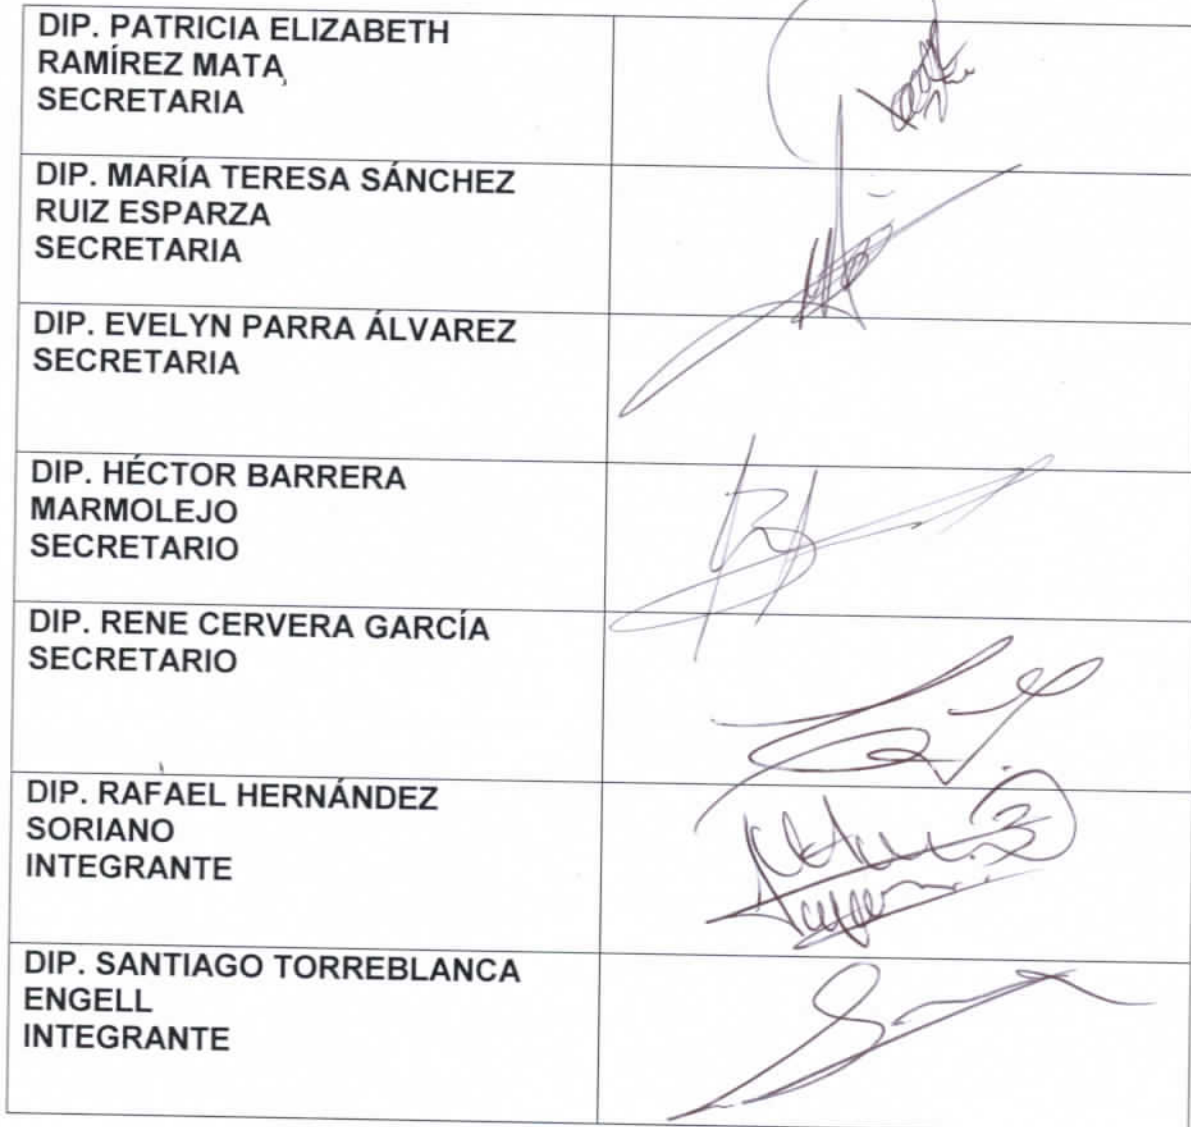 DIP. PATRICIA ELIZABETH
RAMÍREZ MATA
SECRETARIA
DIP. MARÍA TERESA SÁNCHEZ
RUIZ ESPARZA
SECRETARIA
DIP. EVELYN PARRA ÁLVAREZ
SECRETARIA
DIP. HÉCTOR BARRERA
MARMOLEJO
SECRETARIO
DIP. RENE CERVERA GARCÍA
SECRETARIO
DIP. RAFAEL HERNÁNDEZ
SORIANO
INTEGRANTE
DIP. SANTIAGO TORREBLANCA
ENGELL
INTEGRANTE